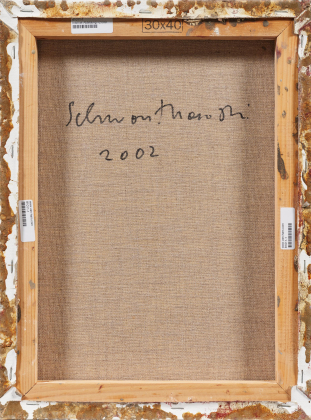 30x40
Schwontkowski
2002